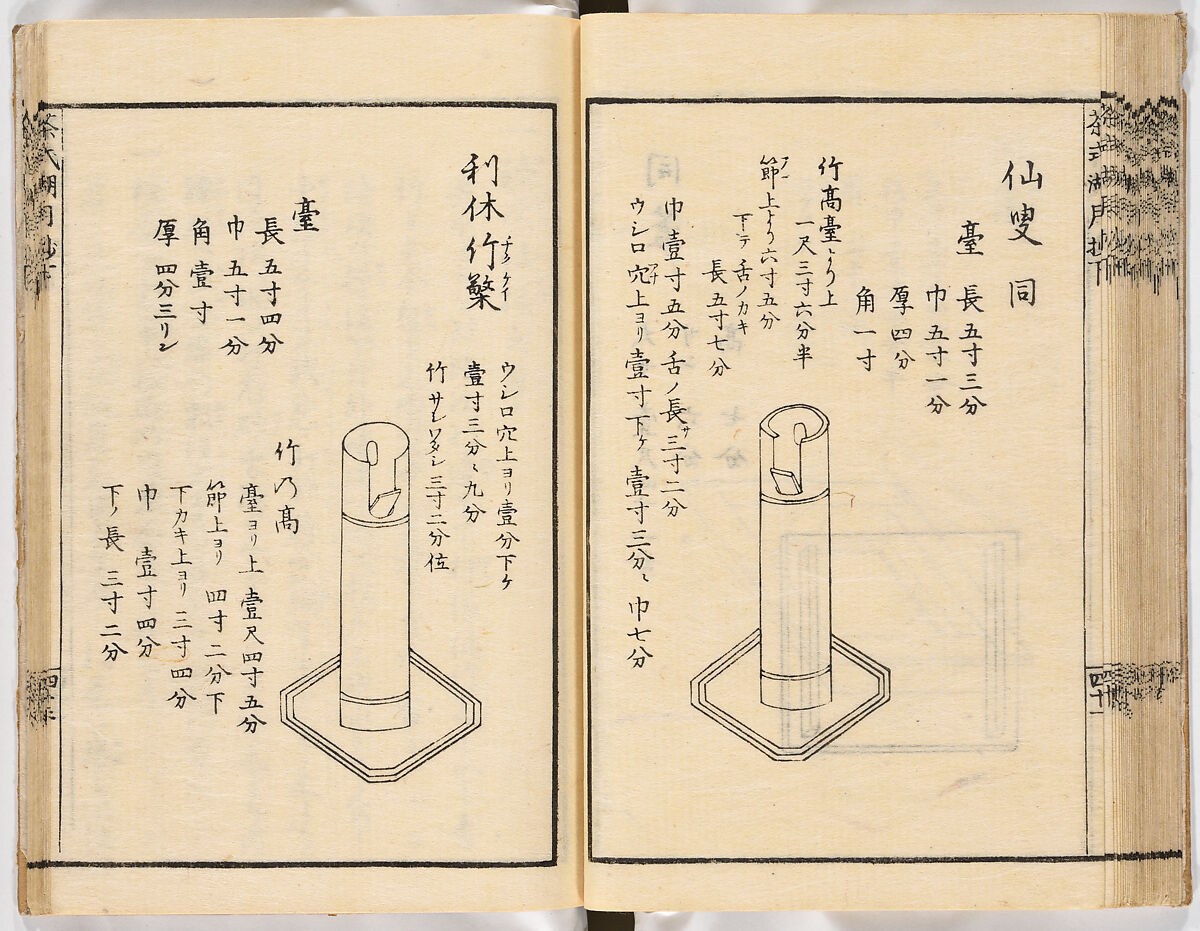 仙叟同
臺
長五寸三分
巾五寸一分
厚四分
角一寸
竹高臺ヨリ上
一尺三寸六分半
節上より六寸五分
下テ舌ノカキ
長五寸七分
巾壹寸五分舌ノ長サ三寸二分
ウシロ穴上ヨリ壹寸下ケ壹寸三分ニ巾七分
四十一
利休竹檠
チクケイ
ウシロ穴上ヨリ壹分下ケ
壹寸三分ニ九分
竹サシワタシ三寸二分位
臺
長五寸四分
巾五寸一分
角壹寸
厚四分三リン
竹ノ高
臺ヨリ上壹尺四寸五分
節上ヨリ四寸二分下
下カキ上ヨリ三寸四分
巾壹寸四分
下ノ長三寸二分